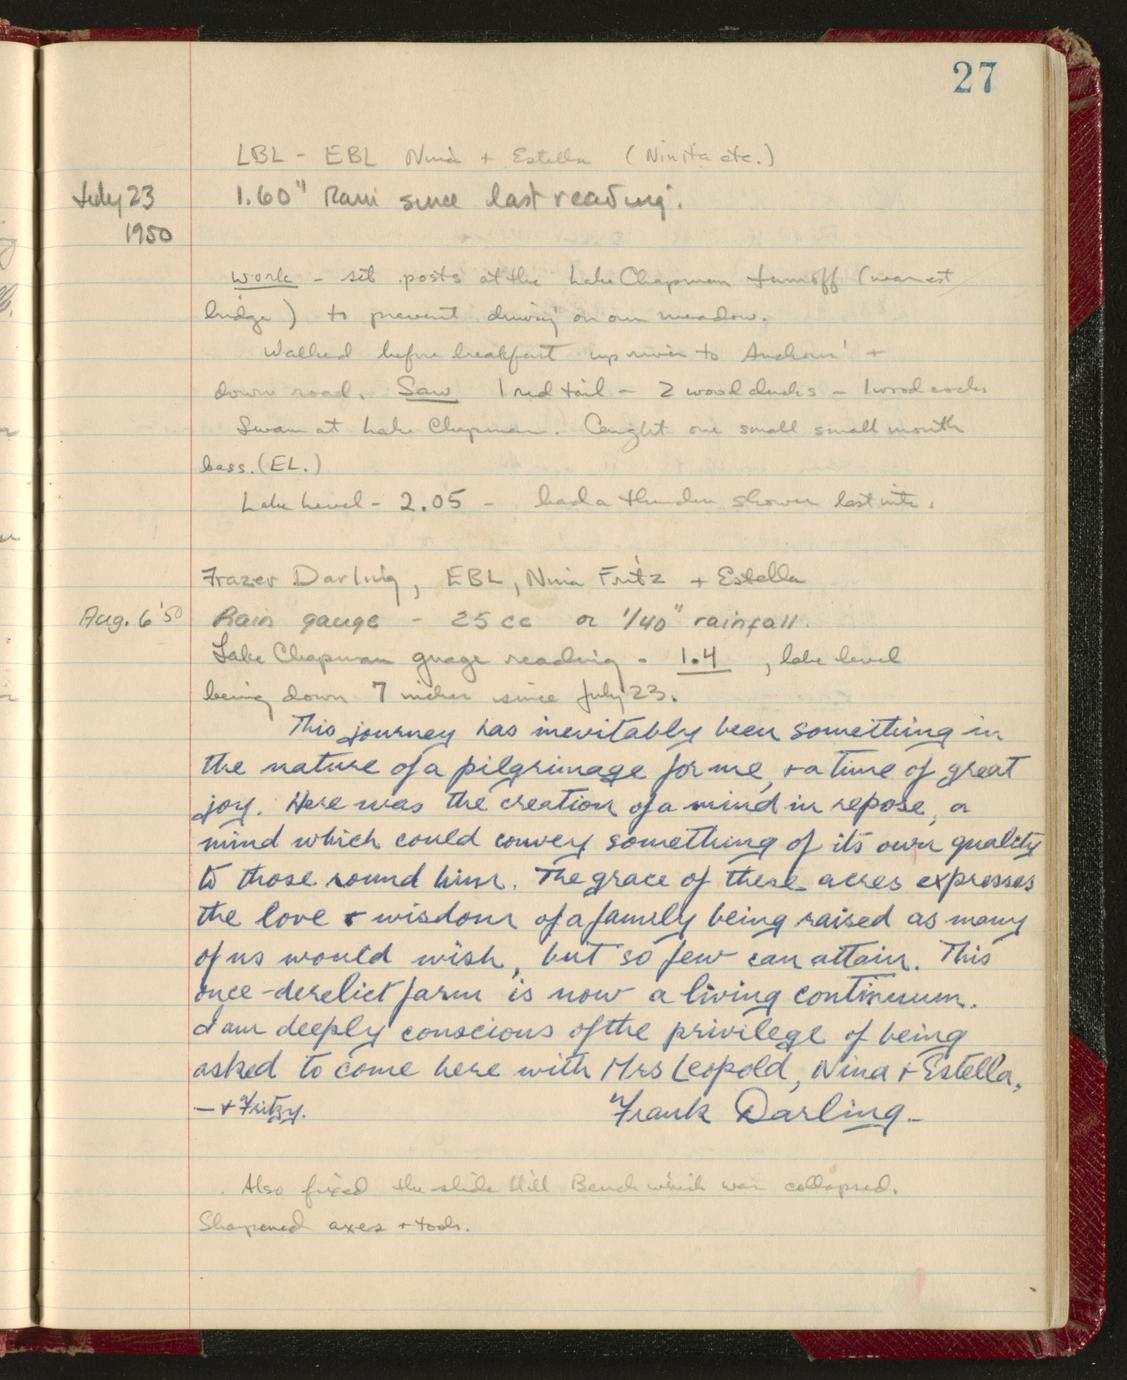 27
LBL - EBL Nina + Estella (Ninita etc.)
July 23 1.60" Rain since last reading.
1950
Work - set posts at the Lake Chapman turnoff (nearest
bridge) to prevent driving on our meadow.
Walked before breakfast up river to Anchors' +
down road. Saw 1 red tail - 2 wood ducks - 1 woodcock
Swam at Lake Chapman. Caught one small small mouth
bass. (EL.)
Lake Level - 2.05 - had a thunder shower last nite.
Frazer Darling, EBL, Nina Fritz + Estella
Aug. 6 '50 Rain gauge - 25 cc or 1/40" rainfall.
Lake Chapman guage reading - 1.4, lake level
being down 7 inches since July 23.
This journey has inevitably been something in
the nature of a pilgrimage for me, + a time of great
joy. Here was the creation of a mind in repose, a
mind which could convey something of its own quality
to those round him. The grace of these acres expresses
the love & wisdom of a family being raised as many
of us would wish, but so few can attain. This
once-derelict farm is now a living continuum.
I am deeply conscious of the privilege of being
asked to come here with Mrs Leopold, Nina + Estella,
- + Fritzy. Frank Darling -
Also fixed the slide Hill Bench which was collapsed.
Sharpened axes + tools.